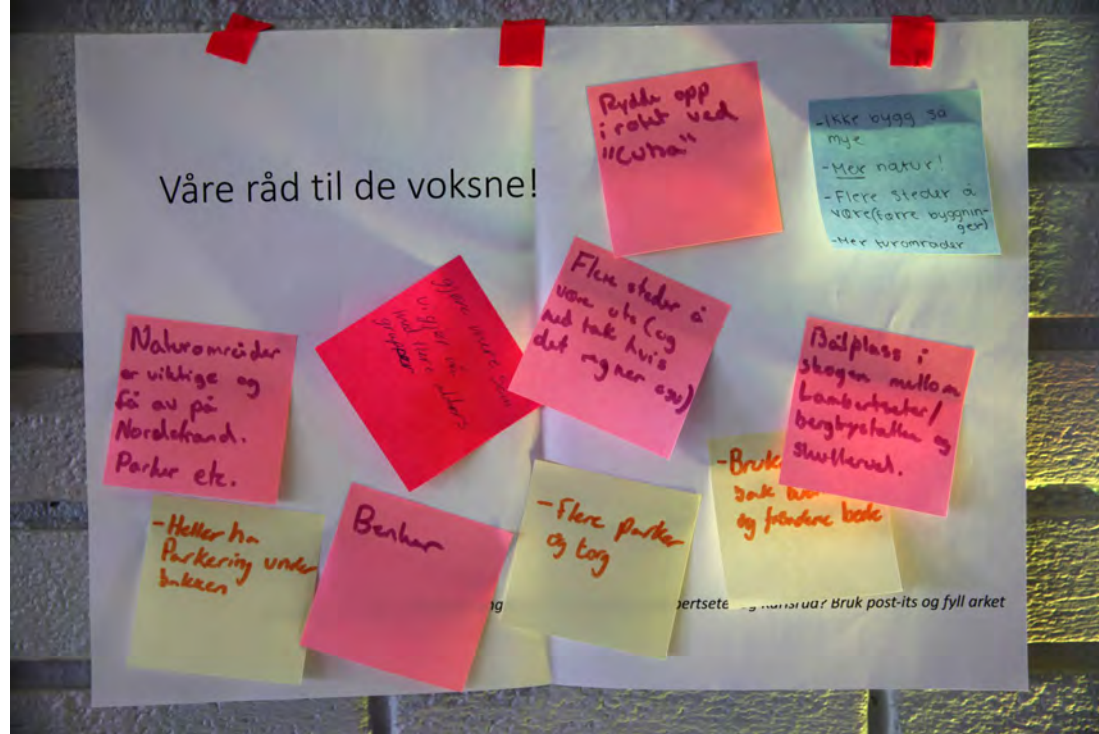 Våre råd til de voksne!
Rydde opp
i rotet ved
"Cuba"
-Ikke bygg så
mye
-Mer natur!
-Flere steder å
være (færre byggnin-
ger)
-Mer turområder
Naturområder
er viktige og
få av på
Nordstrand.
Parker etc.
gjøre mere som
vi gjør nå
med flere alders
grupper
Flere steder å
være ute (og
med tak hvis
det regner osv)
Bålplass i
skogen mellom
Lambertseter/
bergkrystallen og
skullerud.
-Heller ha
Parkering under
bakken
Benker
-Flere parker
og torg
-Bruke
og
og Karlsrud? Bruk post-its og fyll arket